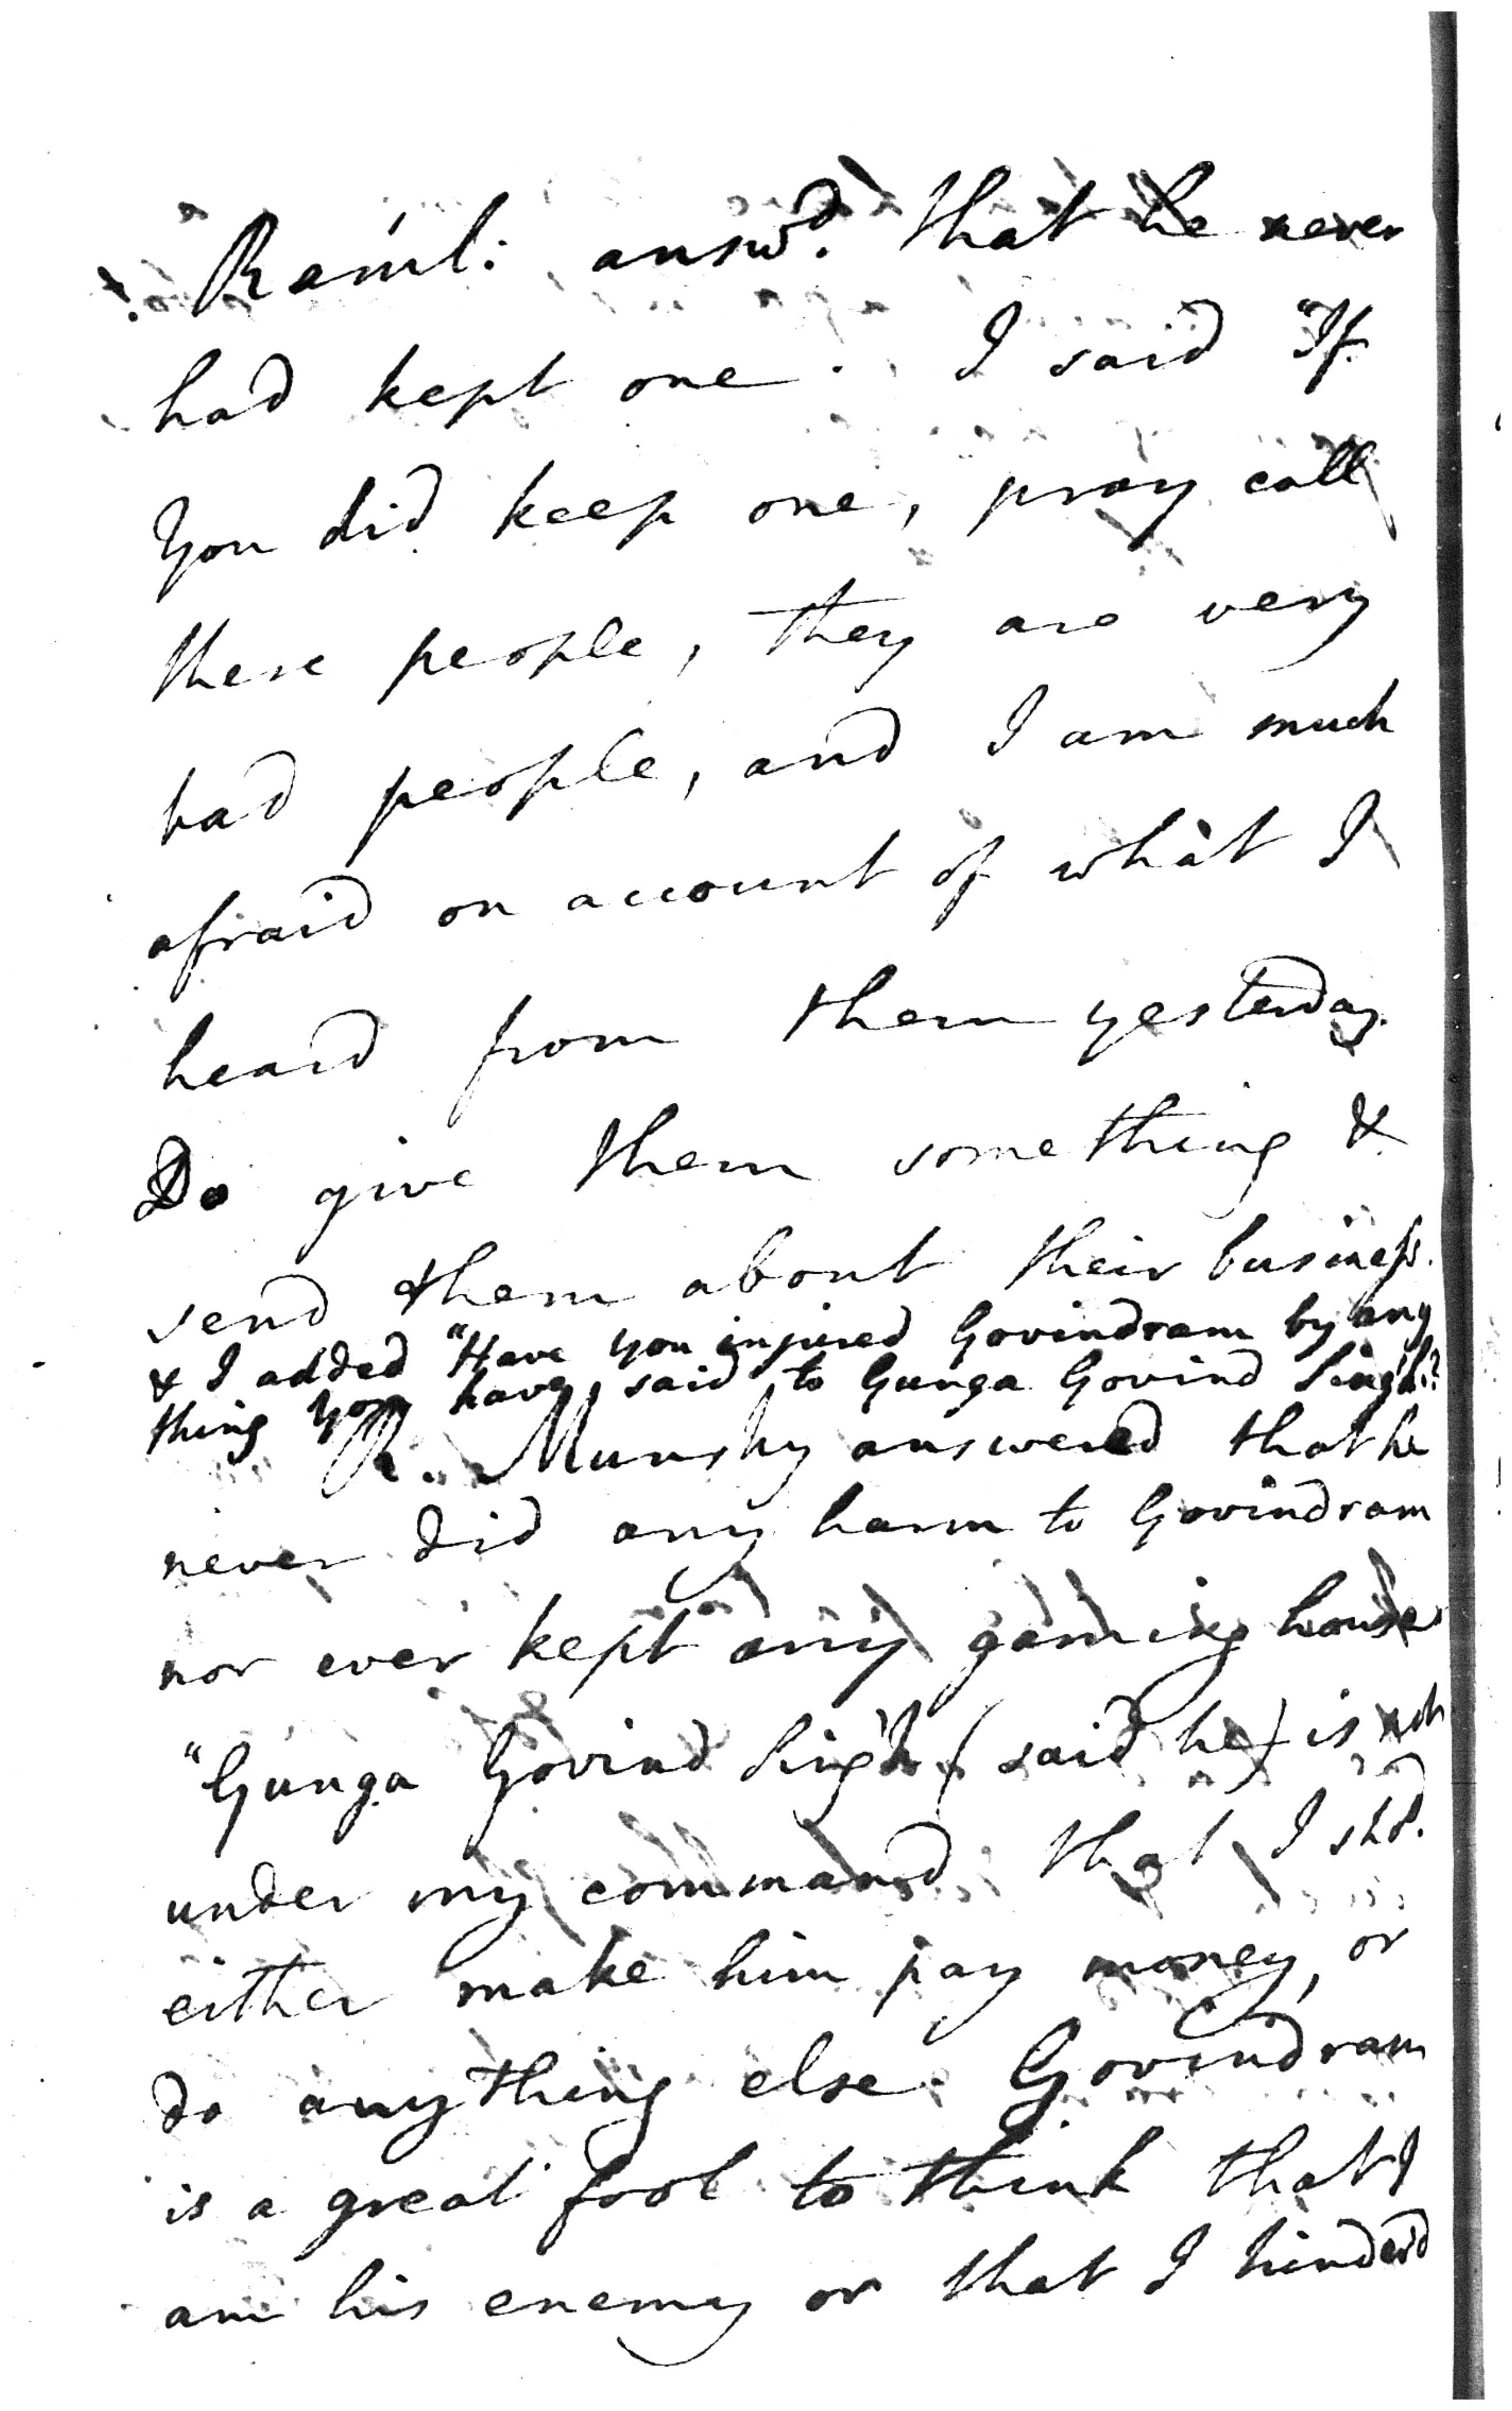 Raml: answd. that he never
had kept one. I said "If
you did keep one, pray call
these people, they are very
bad people, and I am much
afraid on account of what I
heard from them yesterday.
Do give them something &
send them about their business.
& I added "Have you injured Govindram by any
thing you have said to Gunga Govind Singh?
R. Munshy answered that he
never did any harm to Govindram
nor ever kept any gaming house
"Gunga Govind Singh (said he) is not
under my command that I shd.
either make him pay money, or
do anything else. Govindram
is a great fool to think that I
am his enemy or that I hinderd